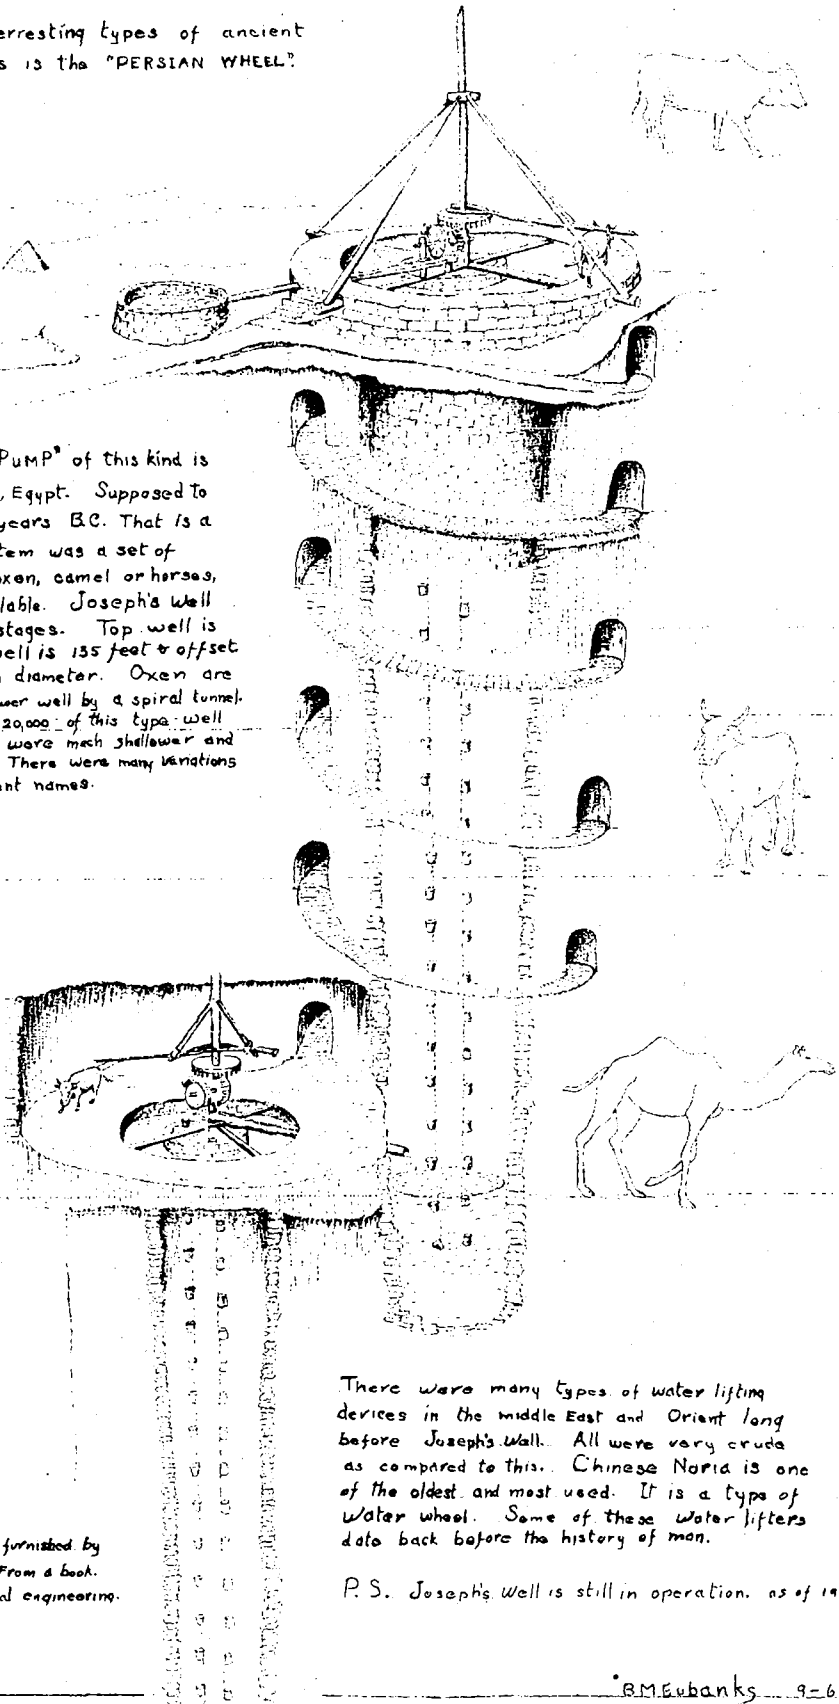 erresting types of ancient
s is the "PERSIAN WHEEL".
PUMP" of this kind is
, Egypt. Supposed to
years B.C. That is a
tem was a set of
oxen, camel or horses,
lable. Joseph's Well
stages. Top well is
well is 135 feet & offset
diameter. Oxen are
wer well by a spiral tunnel.
20,000 of this type well
were mech shallower and
There were many variations
nt names.
There were many types of water lifting
devices in the middle East and Orient long
before Joseph's Well. All were very crude
as compared to this. Chinese Noria is one
of the oldest and most used. It is a type of
Water wheel. Some of these water lifters
date back before the history of man.
furnished by
From a book.
al engineering.
P.S. Joseph's Well is still in operation. as of 19
B.M.Eubanks 9-6